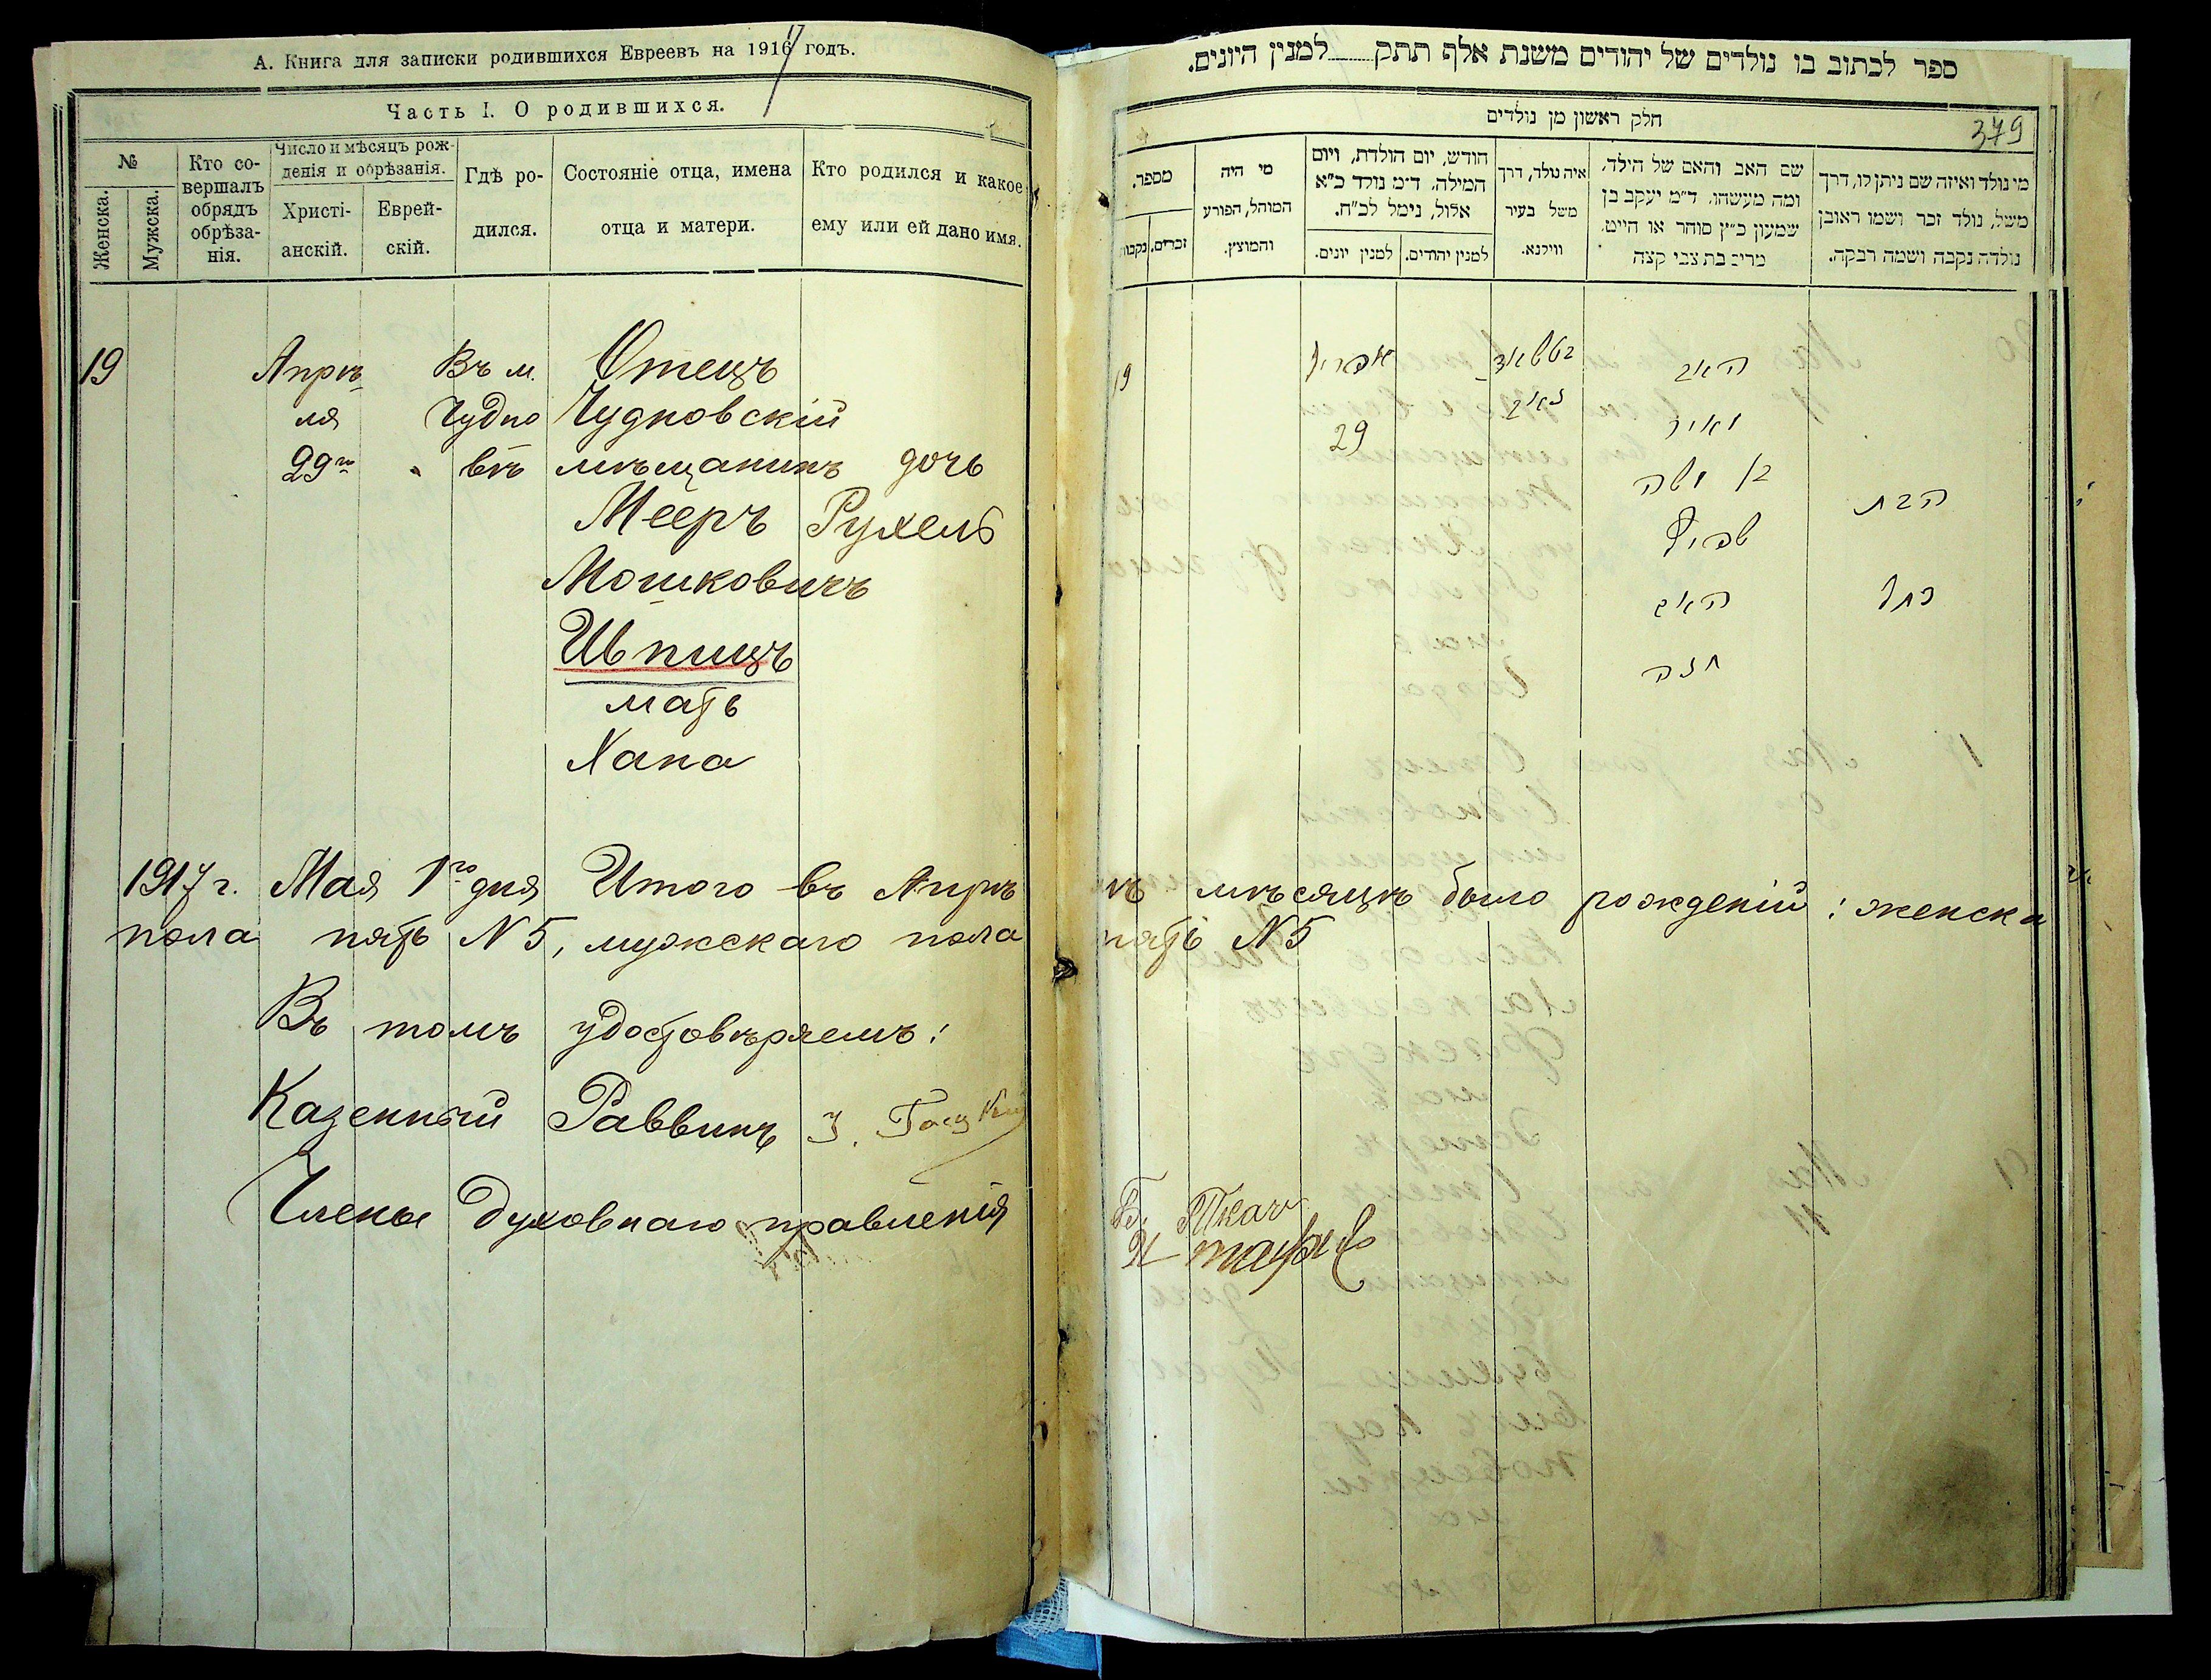 А. Книга для записки родившихся Евреевъ на 1917 годъ.
Часть I. О родившихся.
№
Женска.
Мужска.
Кто совершалъ обрядъ обрѣзанія.
Число и мѣсяцъ рожденія и обрѣзанія.
Христіанскій.
Еврейскій.
Гдѣ родился.
Состояніе отца, имена отца и матери.
Кто родился и какое ему или ей дано имя.
19 Апрѣ Въ м. Отецъ
ля Чудно Чудновскій
29го вѣ мѣщанинъ дочь
Мееръ Рухель
Мошковичъ
Шпицъ
мать
Хана
1917 г. Мая 1го дня Итого въ Апрѣлѣ мѣсяцѣ было рожденій: женска
пола пять N 5, мужскаго пола пять N 5
Въ томъ удостовѣряемъ:
Казенный Раввинъ
Члены Духовнаго правленія
Ткач
ספר לכתוב בו נולדים של יהודים משנת אלף תתק למנין היונים.
חלק ראשון מן נולדים
379
מי נולד ואיזה שם ניתן לו, דרך
משל, נולד זכר ושמו ראובן
נולדה נקבה ושמה רבקה.
שם האב והאם של הילד,
ומה מעשהו. ד״מ יעקב בן
שמעון כ״ץ סוחר או חייט,
מרים בת צבי קצה
איה נולד, דרך
משל בעיר
ווילנא.
חודש, יום הולדת, ויום
המילה. ד״מ נולד כ״א
אלול, נימל לכ״ח.
למנין יהודים.
למנין יונים.
מי היה
המוהל, הפורע
והמוצץ.
מספר.
זכרים.
נקבות
האב אפריל 19
מאיר 29
בן משה
הבת
שפיץ
רחל האם
חנה